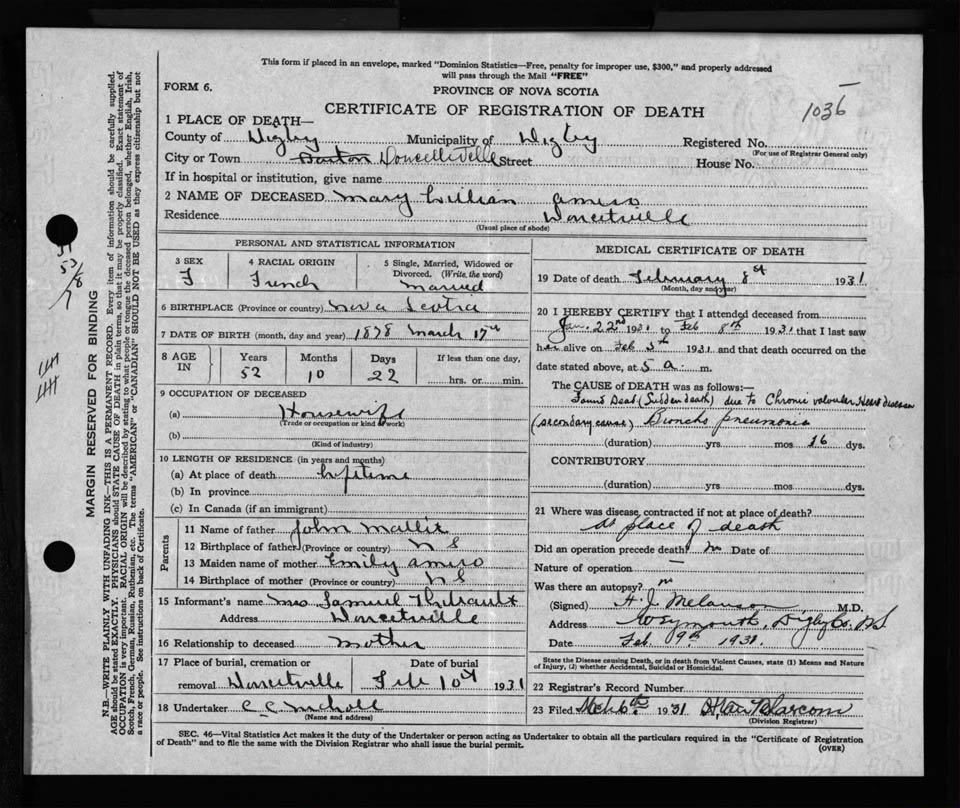 This form if placed in an envelope, marked "Dominion Statistics—Free, penalty for improper use, $300," and properly addressed
will pass through the Mail "FREE"
FORM 6.
PROVINCE OF NOVA SCOTIA
CERTIFICATE OF REGISTRATION OF DEATH
1036
1 PLACE OF DEATH—
County of Digby Municipality of Digby Registered No.
(For use of Registrar General only)
City or Town Street House No.
If in hospital or institution, give name
2 NAME OF DECEASED Mary Lillian Amiro
Residence Doucetville
(Usual place of abode)
PERSONAL AND STATISTICAL INFORMATION
3 SEX 4 RACIAL ORIGIN 5 Single, Married, Widowed or
Divorced. (Write the word)
F French married
6 BIRTHPLACE (Province or country) Nova Scotia
7 DATE OF BIRTH (month, day and year) 1878 March 17th
8 AGE IN Years Months Days If less than one day,
52 10 22 hrs. or min.
9 OCCUPATION OF DECEASED
(a) Housewife
(Trade or occupation or kind of work)
(b)
(Kind of industry)
10 LENGTH OF RESIDENCE (in years and months)
(a) At place of death lifetime
(b) In province
(c) In Canada (if an immigrant)
Parents
11 Name of father John
12 Birthplace of father (Province or country) N S
13 Maiden name of mother Emily Amiro
14 Birthplace of mother (Province or country) N S
15 Informant's name Mrs Samuel Thibault
Address Doucetville
16 Relationship to deceased mother
17 Place of burial, cremation or Date of burial
removal Doucetville Feb 10th 1931
18 Undertaker C. C. Nicholl
(Name and address)
MEDICAL CERTIFICATE OF DEATH
19 Date of death February 8st 1931
(Month, day and year)
20 I HEREBY CERTIFY that I attended deceased from
Jan. 22nd 1931 to Feb 8th 1931 that I last saw
her alive on Feb 5th 1931 and that death occurred on the
date stated above, at 5 a. m.
The CAUSE OF DEATH was as follows:—
Found Dead (Sudden death) due to Chronic valvular Heart disease
(secondary cause) Broncho pneumonia
(duration) yrs mos 16 dys.
CONTRIBUTORY
(duration) yrs mos dys.
21 Where was disease contracted if not at place of death?
At place of death
Did an operation precede death? no Date of
Nature of operation —
Was there an autopsy? no
(Signed) H. J. Melanson M.D.
Address Weymouth, Digby Co. NS
Date Feb. 9th 1931.
State the Disease causing Death, or in death from Violent Causes, state (1) Means and Nature
of Injury, (2) whether Accidental, Suicidal or Homicidal.
22 Registrar's Record Number
23 Filed Mch 6th 1931
(Division Registrar)
SEC. 46—Vital Statistics Act makes it the duty of the Undertaker or person acting as Undertaker to obtain all the particulars required in the "Certificate of Registration
of Death" and to file the same with the Division Registrar who shall issue the burial permit.
(OVER)
MARGIN RESERVED FOR BINDING
N.B.—WRITE PLAINLY WITH UNFADING INK—THIS IS A PERMANENT RECORD. Every item of information should be carefully supplied.
AGE should be stated EXACTLY. PHYSICIANS should STATE CAUSE OF DEATH in plain terms, so that it may be properly classified. Exact statement of
OCCUPATION is very important. RACIAL ORIGIN will be described by stating to what people or tongue the deceased person belonged, whether English, Irish,
Scotch, French, German, Russian, Ruthenian, etc. The terms "AMERICAN" or "CANADIAN" SHOULD NOT BE USED as they express citizenship but not
a race or people. See instructions on back of Certificate.